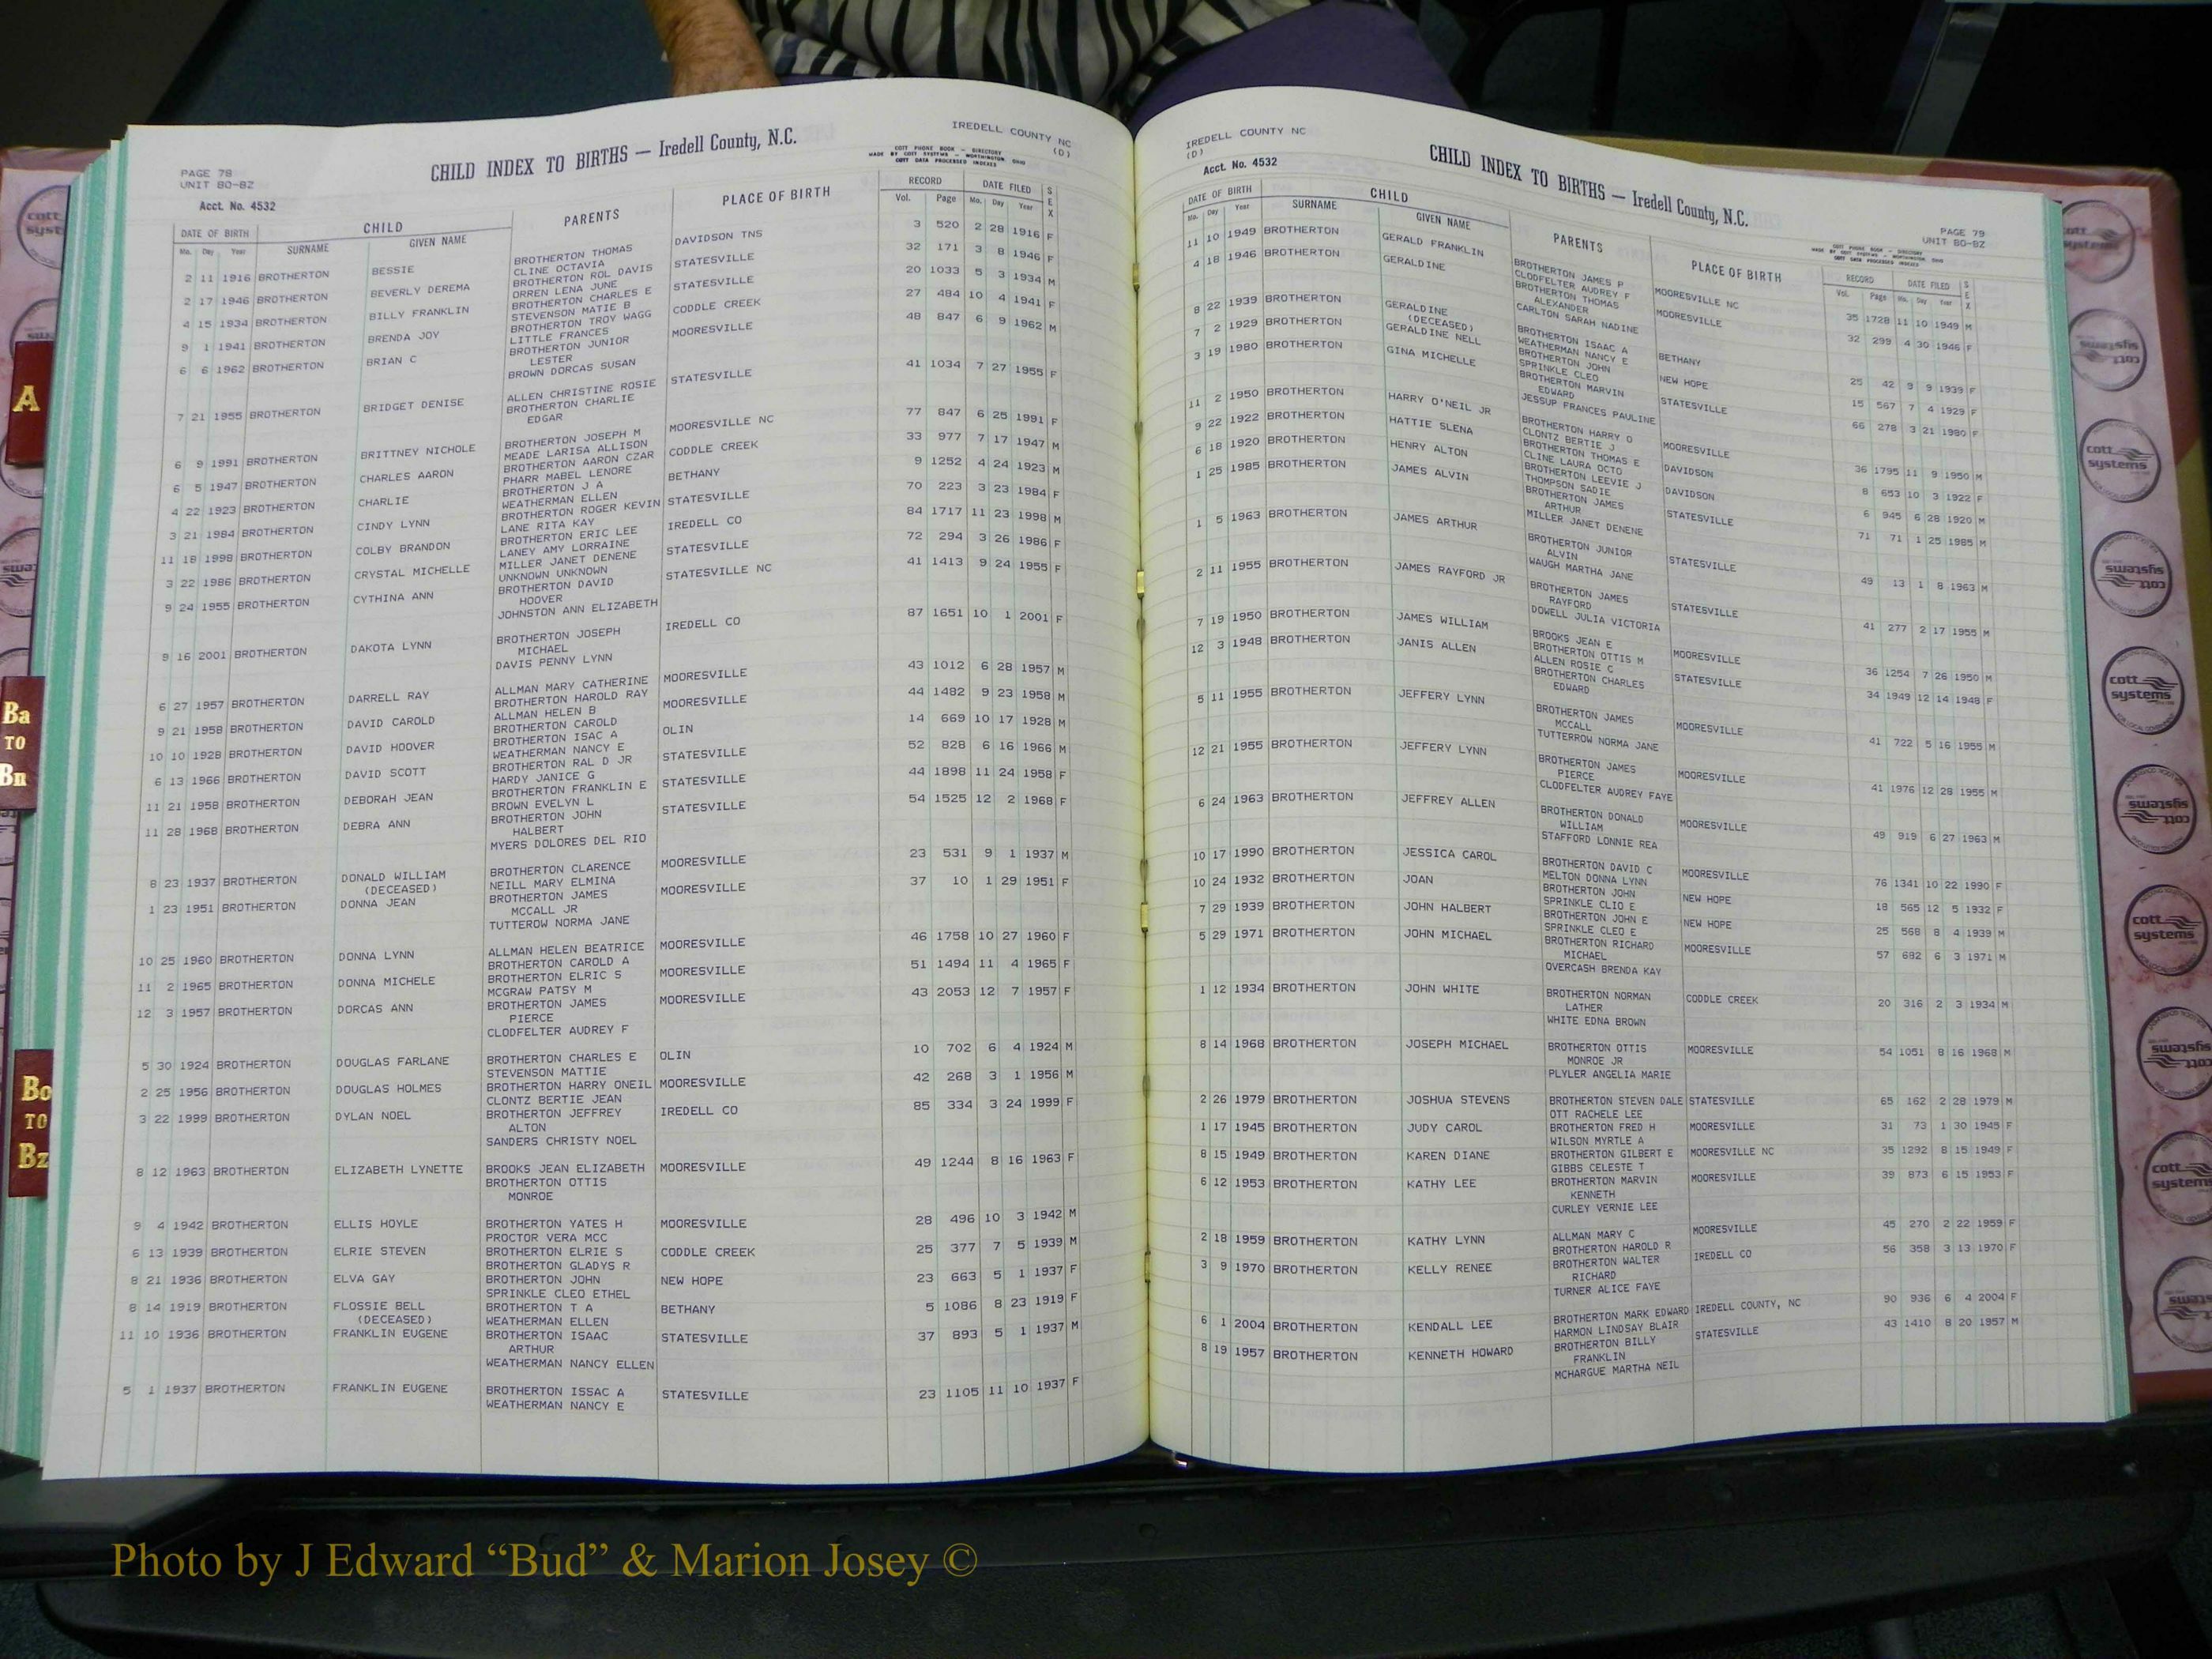 IREDELL COUNTY NC
(D)
CHILD INDEX TO BIRTHS — Iredell County, N.C.
COTT PHONE BOOK - DIRECTORY
MADE BY COTT SYSTEMS - WORTHINGTON, OHIO
COTT DATA PROCESSED INDEXES
PAGE 78
UNIT BO-BZ
Acct. No. 4532
DATE OF BIRTH CHILD PARENTS PLACE OF BIRTH RECORD DATE FILED SEX
Mo. Day Year SURNAME GIVEN NAME Vol. Page Mo. Day Year
2 11 1916 BROTHERTON BESSIE BROTHERTON THOMAS DAVIDSON TNS 3 520 2 28 1916 F
CLINE OCTAVIA
2 17 1946 BROTHERTON BEVERLY DEREMA BROTHERTON ROL DAVIS STATESVILLE 32 171 3 8 1946 F
ORREN LENA JUNE
4 15 1934 BROTHERTON BILLY FRANKLIN BROTHERTON CHARLES E STATESVILLE 20 1033 5 3 1934 M
STEVENSON MATIE B
9 1 1941 BROTHERTON BRENDA JOY BROTHERTON TROY WAGG CODDLE CREEK 27 484 10 4 1941 F
LITTLE FRANCES
6 6 1962 BROTHERTON BRIAN C BROTHERTON JUNIOR MOORESVILLE 48 847 6 9 1962 M
LESTER
BROWN DORCAS SUSAN
7 21 1955 BROTHERTON BRIDGET DENISE ALLEN CHRISTINE ROSIE STATESVILLE 41 1034 7 27 1955 F
BROTHERTON CHARLIE
EDGAR
6 9 1991 BROTHERTON BRITTNEY NICHOLE BROTHERTON JOSEPH M MOORESVILLE NC 77 847 6 25 1991 F
MEADE LARISA ALLISON
6 5 1947 BROTHERTON CHARLES AARON BROTHERTON AARON CZAR CODDLE CREEK 33 977 7 17 1947 M
PHARR MABEL LENORE
4 22 1923 BROTHERTON CHARLIE BROTHERTON J A BETHANY 9 1252 4 24 1923 M
WEATHERMAN ELLEN
3 21 1984 BROTHERTON CINDY LYNN BROTHERTON ROGER KEVIN STATESVILLE 70 223 3 23 1984 F
LANE RITA KAY
11 18 1998 BROTHERTON COLBY BRANDON BROTHERTON ERIC LEE IREDELL CO 84 1717 11 23 1998 M
LANEY AMY LORRAINE
3 22 1986 BROTHERTON CRYSTAL MICHELLE MILLER JANET DENENE STATESVILLE 72 294 3 26 1986 F
UNKNOWN UNKNOWN
9 24 1955 BROTHERTON CYTHINA ANN BROTHERTON DAVID STATESVILLE NC 41 1413 9 24 1955 F
HOOVER
JOHNSTON ANN ELIZABETH
9 16 2001 BROTHERTON DAKOTA LYNN BROTHERTON JOSEPH IREDELL CO 87 1651 10 1 2001 F
MICHAEL
DAVIS PENNY LYNN
6 27 1957 BROTHERTON DARRELL RAY ALLMAN MARY CATHERINE MOORESVILLE 43 1012 6 28 1957 M
BROTHERTON HAROLD RAY
9 21 1958 BROTHERTON DAVID CAROLD ALLMAN HELEN B MOORESVILLE 44 1482 9 23 1958 M
BROTHERTON CAROLD
10 10 1928 BROTHERTON DAVID HOOVER BROTHERTON ISAC A OLIN 14 669 10 17 1928 M
WEATHERMAN NANCY E
6 13 1966 BROTHERTON DAVID SCOTT BROTHERTON RAL D JR STATESVILLE 52 828 6 16 1966 M
HARDY JANICE G
11 21 1958 BROTHERTON DEBORAH JEAN BROTHERTON FRANKLIN E STATESVILLE 44 1898 11 24 1958 F
BROWN EVELYN L
11 28 1968 BROTHERTON DEBRA ANN BROTHERTON JOHN STATESVILLE 54 1525 12 2 1968 F
HALBERT
MYERS DOLORES DEL RIO
8 23 1937 BROTHERTON DONALD WILLIAM BROTHERTON CLARENCE MOORESVILLE 23 531 9 1 1937 M
(DECEASED) NEILL MARY ELMINA
1 23 1951 BROTHERTON DONNA JEAN BROTHERTON JAMES MOORESVILLE 37 10 1 29 1951 F
MCCALL JR
TUTTEROW NORMA JANE
10 25 1960 BROTHERTON DONNA LYNN ALLMAN HELEN BEATRICE MOORESVILLE 46 1758 10 27 1960 F
BROTHERTON CAROLD A
11 2 1965 BROTHERTON DONNA MICHELE BROTHERTON ELRIC S MOORESVILLE 51 1494 11 4 1965 F
MCGRAW PATSY M
12 3 1957 BROTHERTON DORCAS ANN BROTHERTON JAMES MOORESVILLE 43 2053 12 7 1957 F
PIERCE
CLODFELTER AUDREY F
5 30 1924 BROTHERTON DOUGLAS FARLANE BROTHERTON CHARLES E OLIN 10 702 6 4 1924 M
STEVENSON MATTIE
2 25 1956 BROTHERTON DOUGLAS HOLMES BROTHERTON HARRY ONEIL MOORESVILLE 42 268 3 1 1956 M
CLONTZ BERTIE JEAN
3 22 1999 BROTHERTON DYLAN NOEL BROTHERTON JEFFREY IREDELL CO 85 334 3 24 1999 F
ALTON
SANDERS CHRISTY NOEL
8 12 1963 BROTHERTON ELIZABETH LYNETTE BROOKS JEAN ELIZABETH MOORESVILLE 49 1244 8 16 1963 F
BROTHERTON OTTIS
MONROE
9 4 1942 BROTHERTON ELLIS HOYLE BROTHERTON YATES H MOORESVILLE 28 496 10 3 1942 M
PROCTOR VERA MCC
6 13 1939 BROTHERTON ELRIE STEVEN BROTHERTON ELRIE S CODDLE CREEK 25 377 7 5 1939 M
BROTHERTON GLADYS R
8 21 1936 BROTHERTON ELVA GAY BROTHERTON JOHN NEW HOPE 23 663 5 1 1937 F
SPRINKLE CLEO ETHEL
8 14 1919 BROTHERTON FLOSSIE BELL BROTHERTON T A BETHANY 5 1086 8 23 1919 F
(DECEASED) WEATHERMAN ELLEN
11 10 1936 BROTHERTON FRANKLIN EUGENE BROTHERTON ISAAC STATESVILLE 37 893 5 1 1937 M
ARTHUR
WEATHERMAN NANCY ELLEN
5 1 1937 BROTHERTON FRANKLIN EUGENE BROTHERTON ISSAC A STATESVILLE 23 1105 11 10 1937 F
WEATHERMAN NANCY E
IREDELL COUNTY NC
(D)
Acct. No. 4532
CHILD INDEX TO BIRTHS — Iredell County, N.C.
PAGE 79
UNIT BO-BZ
COTT PHONE BOOK - DIRECTORY
MADE BY COTT SYSTEMS - WORTHINGTON, OHIO
COTT DATA PROCESSED INDEXES
DATE OF BIRTH CHILD PARENTS PLACE OF BIRTH RECORD DATE FILED SEX
Mo. Day Year SURNAME GIVEN NAME Vol. Page Mo. Day Year
11 10 1949 BROTHERTON GERALD FRANKLIN BROTHERTON JAMES P MOORESVILLE NC 35 1728 11 10 1949 M
CLODFELTER AUDREY F
4 18 1946 BROTHERTON GERALDINE BROTHERTON THOMAS MOORESVILLE 32 299 4 30 1946 F
ALEXANDER
CARLTON SARAH NADINE
8 22 1939 BROTHERTON GERALDINE BROTHERTON ISAAC A BETHANY 25 42 9 9 1939 F
(DECEASED) WEATHERMAN NANCY E
7 2 1929 BROTHERTON GERALDINE NELL BROTHERTON JOHN NEW HOPE 15 567 7 4 1929 F
SPRINKLE CLEO
3 19 1980 BROTHERTON GINA MICHELLE BROTHERTON MARVIN STATESVILLE 66 278 3 21 1980 F
EDWARD
JESSUP FRANCES PAULINE
11 2 1950 BROTHERTON HARRY O'NEIL JR BROTHERTON HARRY O MOORESVILLE 36 1795 11 9 1950 M
CLONTZ BERTIE J
9 22 1922 BROTHERTON HATTIE SLENA BROTHERTON THOMAS E DAVIDSON 8 653 10 3 1922 F
CLINE LAURA OCTO
6 18 1920 BROTHERTON HENRY ALTON BROTHERTON LEEVIE J DAVIDSON 6 945 6 28 1920 M
THOMPSON SADIE
1 25 1985 BROTHERTON JAMES ALVIN BROTHERTON JAMES STATESVILLE 71 71 1 25 1985 M
ARTHUR
MILLER JANET DENENE
1 5 1963 BROTHERTON JAMES ARTHUR BROTHERTON JUNIOR STATESVILLE 49 13 1 8 1963 M
ALVIN
WAUGH MARTHA JANE
2 11 1955 BROTHERTON JAMES RAYFORD JR BROTHERTON JAMES STATESVILLE 41 277 2 17 1955 M
RAYFORD
DOWELL JULIA VICTORIA
7 19 1950 BROTHERTON JAMES WILLIAM BROOKS JEAN E MOORESVILLE 36 1254 7 26 1950 M
BROTHERTON OTTIS M
12 3 1948 BROTHERTON JANIS ALLEN ALLEN ROSIE C STATESVILLE 34 1949 12 14 1948 F
BROTHERTON CHARLES
EDWARD
5 11 1955 BROTHERTON JEFFERY LYNN BROTHERTON JAMES MOORESVILLE 41 722 5 16 1955 M
MCCALL
TUTTERROW NORMA JANE
12 21 1955 BROTHERTON JEFFERY LYNN BROTHERTON JAMES MOORESVILLE 41 1976 12 28 1955 M
PIERCE
CLODFELTER AUDREY FAYE
6 24 1963 BROTHERTON JEFFREY ALLEN BROTHERTON DONALD MOORESVILLE 49 919 6 27 1963 M
WILLIAM
STAFFORD LONNIE REA
10 17 1990 BROTHERTON JESSICA CAROL BROTHERTON DAVID C MOORESVILLE 76 1341 10 22 1990 F
MELTON DONNA LYNN
10 24 1932 BROTHERTON JOAN BROTHERTON JOHN NEW HOPE 18 565 12 5 1932 F
SPRINKLE CLIO E
7 29 1939 BROTHERTON JOHN HALBERT BROTHERTON JOHN E NEW HOPE 25 568 8 4 1939 M
SPRINKLE CLEO E
5 29 1971 BROTHERTON JOHN MICHAEL BROTHERTON RICHARD MOORESVILLE 57 682 6 3 1971 M
MICHAEL
OVERCASH BRENDA KAY
1 12 1934 BROTHERTON JOHN WHITE BROTHERTON NORMAN CODDLE CREEK 20 316 2 3 1934 M
LATHER
WHITE EDNA BROWN
8 14 1968 BROTHERTON JOSEPH MICHAEL BROTHERTON OTTIS MOORESVILLE 54 1051 8 16 1968 M
MONROE JR
PLYLER ANGELIA MARIE
2 26 1979 BROTHERTON JOSHUA STEVENS BROTHERTON STEVEN DALE STATESVILLE 65 162 2 28 1979 M
OTT RACHELE LEE
1 17 1945 BROTHERTON JUDY CAROL BROTHERTON FRED H MOORESVILLE 31 73 1 30 1945 F
WILSON MYRTLE A
8 15 1949 BROTHERTON KAREN DIANE BROTHERTON GILBERT E MOORESVILLE NC 35 1292 8 15 1949 F
GIBBS CELESTE T
6 12 1953 BROTHERTON KATHY LEE BROTHERTON MARVIN MOORESVILLE 39 873 6 15 1953 F
KENNETH
CURLEY VERNIE LEE
2 18 1959 BROTHERTON KATHY LYNN ALLMAN MARY C MOORESVILLE 45 270 2 22 1959 F
BROTHERTON HAROLD R
3 9 1970 BROTHERTON KELLY RENEE BROTHERTON WALTER IREDELL CO 56 358 3 13 1970 F
RICHARD
TURNER ALICE FAYE
6 1 2004 BROTHERTON KENDALL LEE BROTHERTON MARK EDWARD IREDELL COUNTY, NC 90 936 6 4 2004 F
HARMON LINDSAY BLAIR
8 19 1957 BROTHERTON KENNETH HOWARD BROTHERTON BILLY STATESVILLE 43 1410 8 20 1957 M
FRANKLIN
MCHARGUE MARTHA NEIL
A
Ba
TO
Bn
Bo
TO
Bz
cott
systems
Photo by J Edward “Bud” & Marion Josey ©